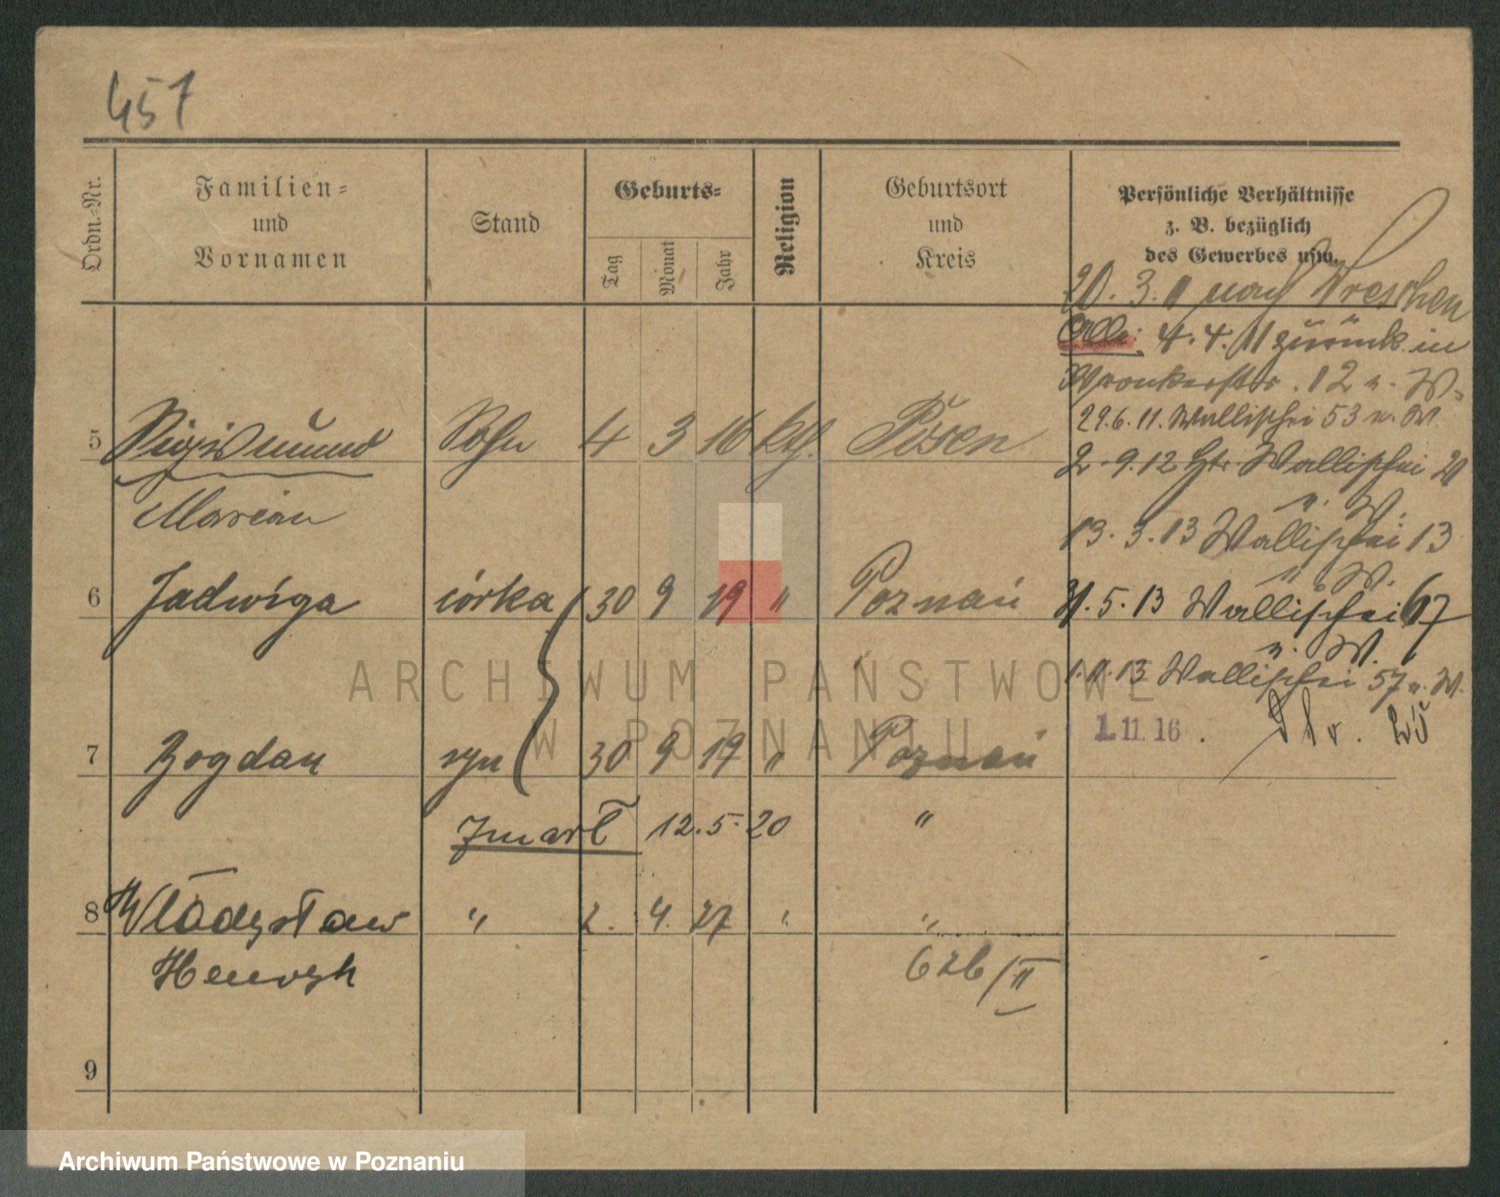 457
Ordn.=Nr.
Familien=
und
Vornamen
Stand
Geburts=
Tag
Monat
Jahr
Religion
Geburtsort
und
Kreis
Persönliche Verhältnisse
z. B. bezüglich
des Gewerbes usw.
20. 3. 11 nach Wreschen
Alle: 4. 4. 11 zurück in
Wronkerstr. 12 n. W.
29.6.11. Wallischei 53 n. W.
5 Sigismund Sohn 4 3 16 kth. Posen
2. 9. 12 Wallischei
Marian
n. W.
13. 3. 13 Wallischei 13
n. W.
6 Jadwiga córka 30 9 19 " Poznań
31. 5. 13 Wallischei 67
n. W.
1. 11. 13 Wallischei 57 n. W.
1. 11. 16.
7 Bogdan syn 30 9 19 " Poznań
Zmarł 12. 5. 20 "
8 Władysław " 2. 4. 27 " "
Henryk
9
ARCHIWUM PAŃSTWOWE
W POZNANIU
Archiwum Państwowe w Poznaniu